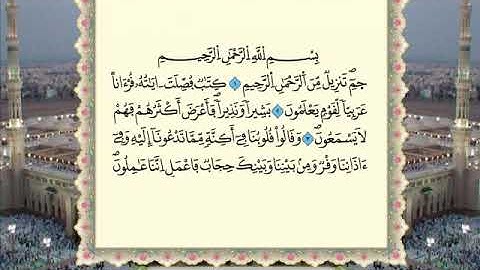 بِسْمِ اِ۬للَّهِ اِ۬لرَّحْمَٰنِ اِ۬لرَّحِيمِ
حمٓ تَنزِيلٌ مِّنَ اَ۬لرَّحْمَٰنِ اِ۬لرَّحِيمِ ١ كِتَٰبٌ فُصِّلَتَ اٰيَٰتُهُۥ قُرْءَاناً
عَرَبِيّاً لِّقَوْمٍ يَعْلَمُونَ ٢ بَشِيراً وَنَذِيراً فَأَعْرَضَ أَكْثَرُهُمْ فَهُمْ
لَا يَسْمَعُونَ ٣ وَقَالُواْ قُلُوبُنَا فِےٓ أَكِنَّةٍ مِّمَّا تَدْعُونَآ إِلَيْهِ وَفِےٓ
ءَاذَانِنَا وَقْرٌ وَمِنۢ بَيْنِنَا وَبَيْنِكَ حِجَابٌ فَاعْمَلِ اِنَّنَا عَٰمِلُونَ